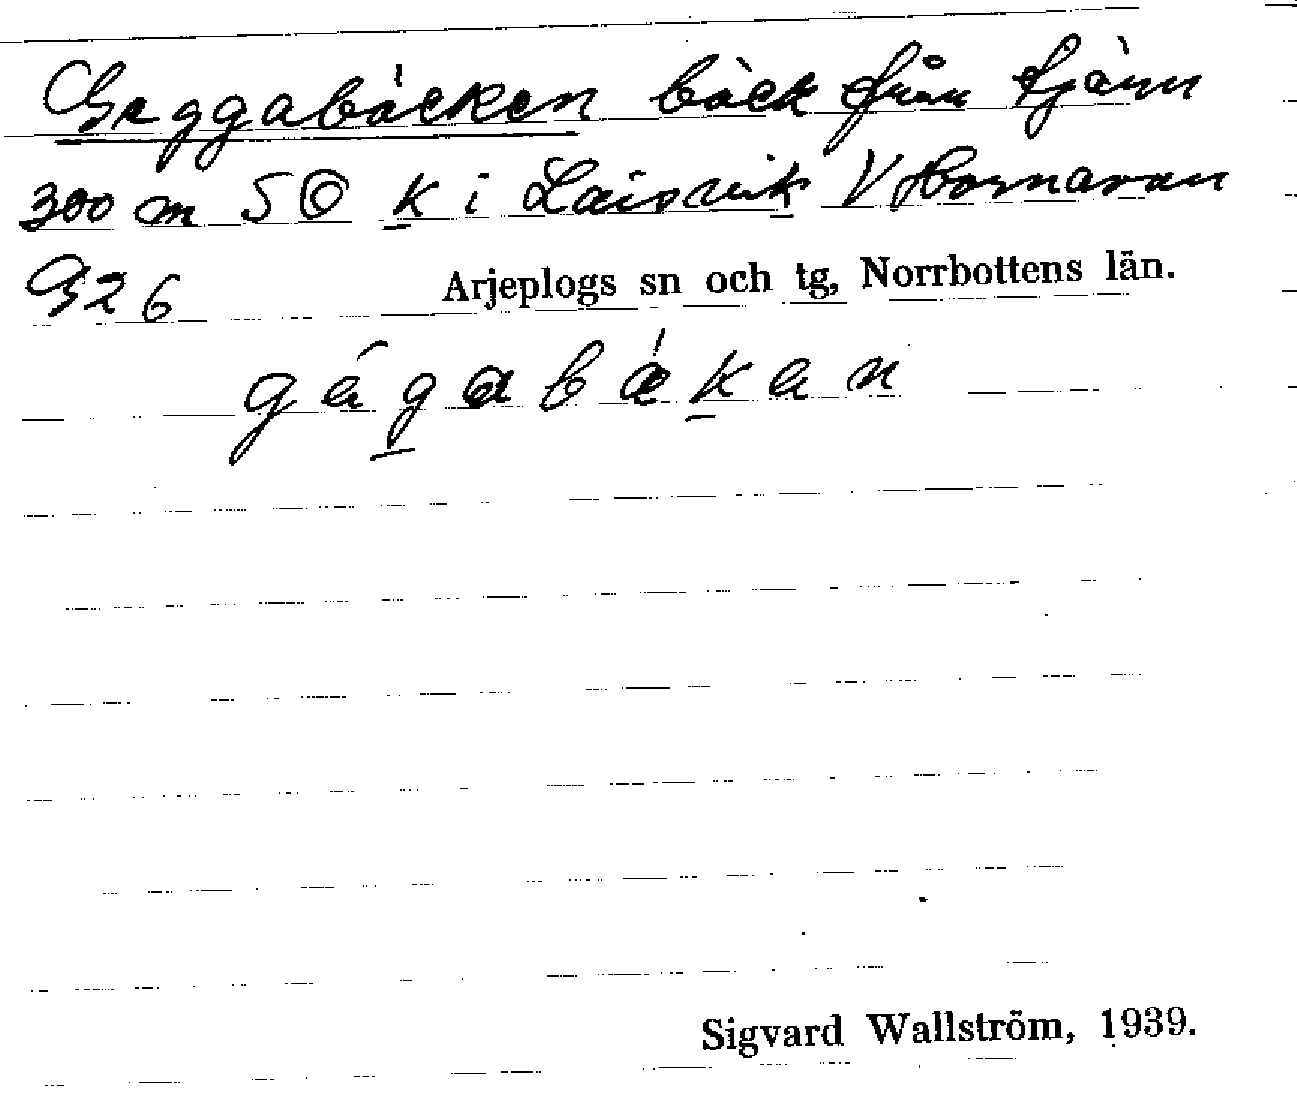 Geggabäcken bäck från tjärn
300 m SO k i Laisvik V Hornavan
G26
Arjeplogs sn och tg, Norrbottens län.
gégabäkan
Sigvard Wallström, 1939.